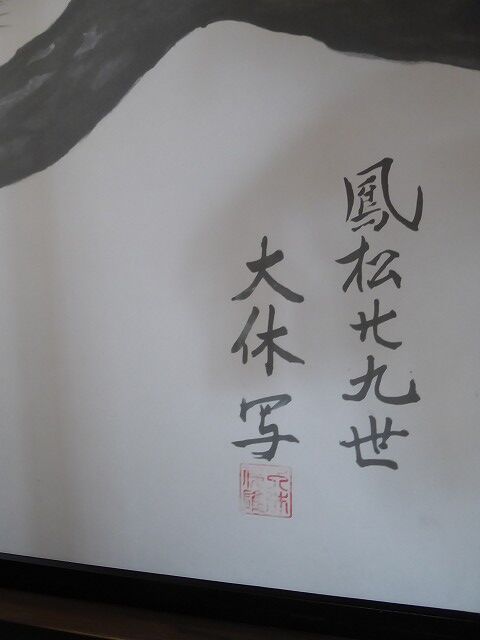 鳳松廿九世
大休写